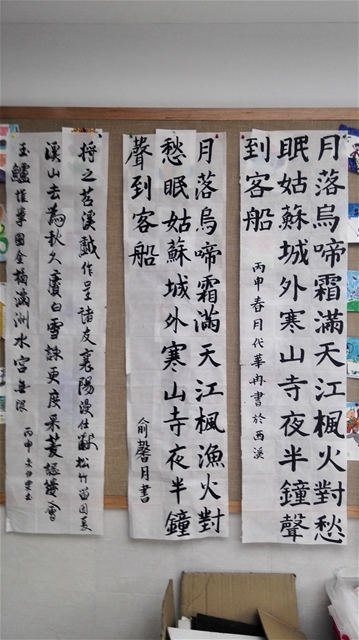 月落烏啼霜滿天江楓火對愁
眠姑蘇城外寒山寺夜半鐘聲
到客船
丙申春月代華冉書於西溪
月落烏啼霜滿天江楓漁火對
愁眠姑蘇城外寒山寺夜半鐘
聲到客船
俞馨月書
将之苕溪戲作呈諸友襄陽漫仕黻松竹留因夏
溪山去為秋久賡白雪詠更度采菱謳縷會
玉鱸堆團金橘滿洲水宮無限
丙申